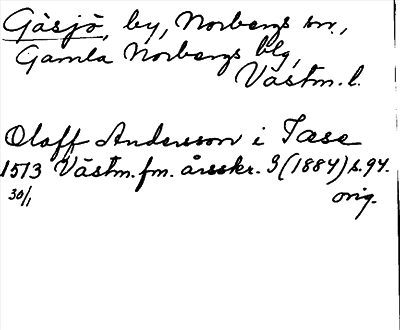 Gåsjö, by, Norbergs sn.,
Gamla Norbergs blg,
Västm. l.
Olaff Andersson i Tase
1513 Västm. fm. årsskr. 3 (1884) s. 94.
30/1 orig.